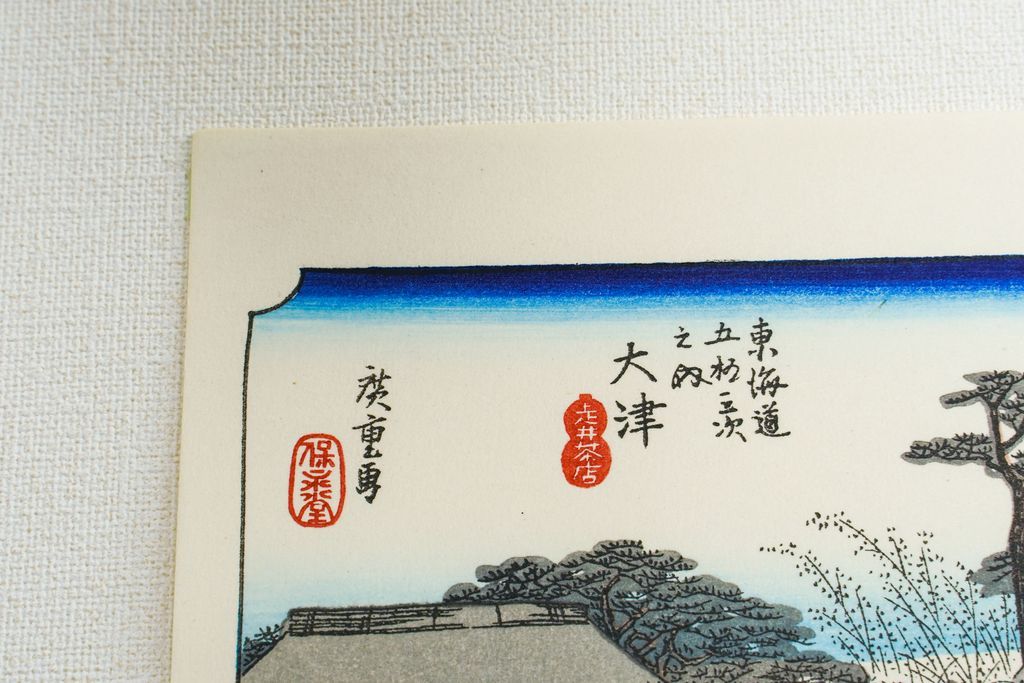 東海道
五拾三次
之内
大津
走井茶店
廣重画
保永堂